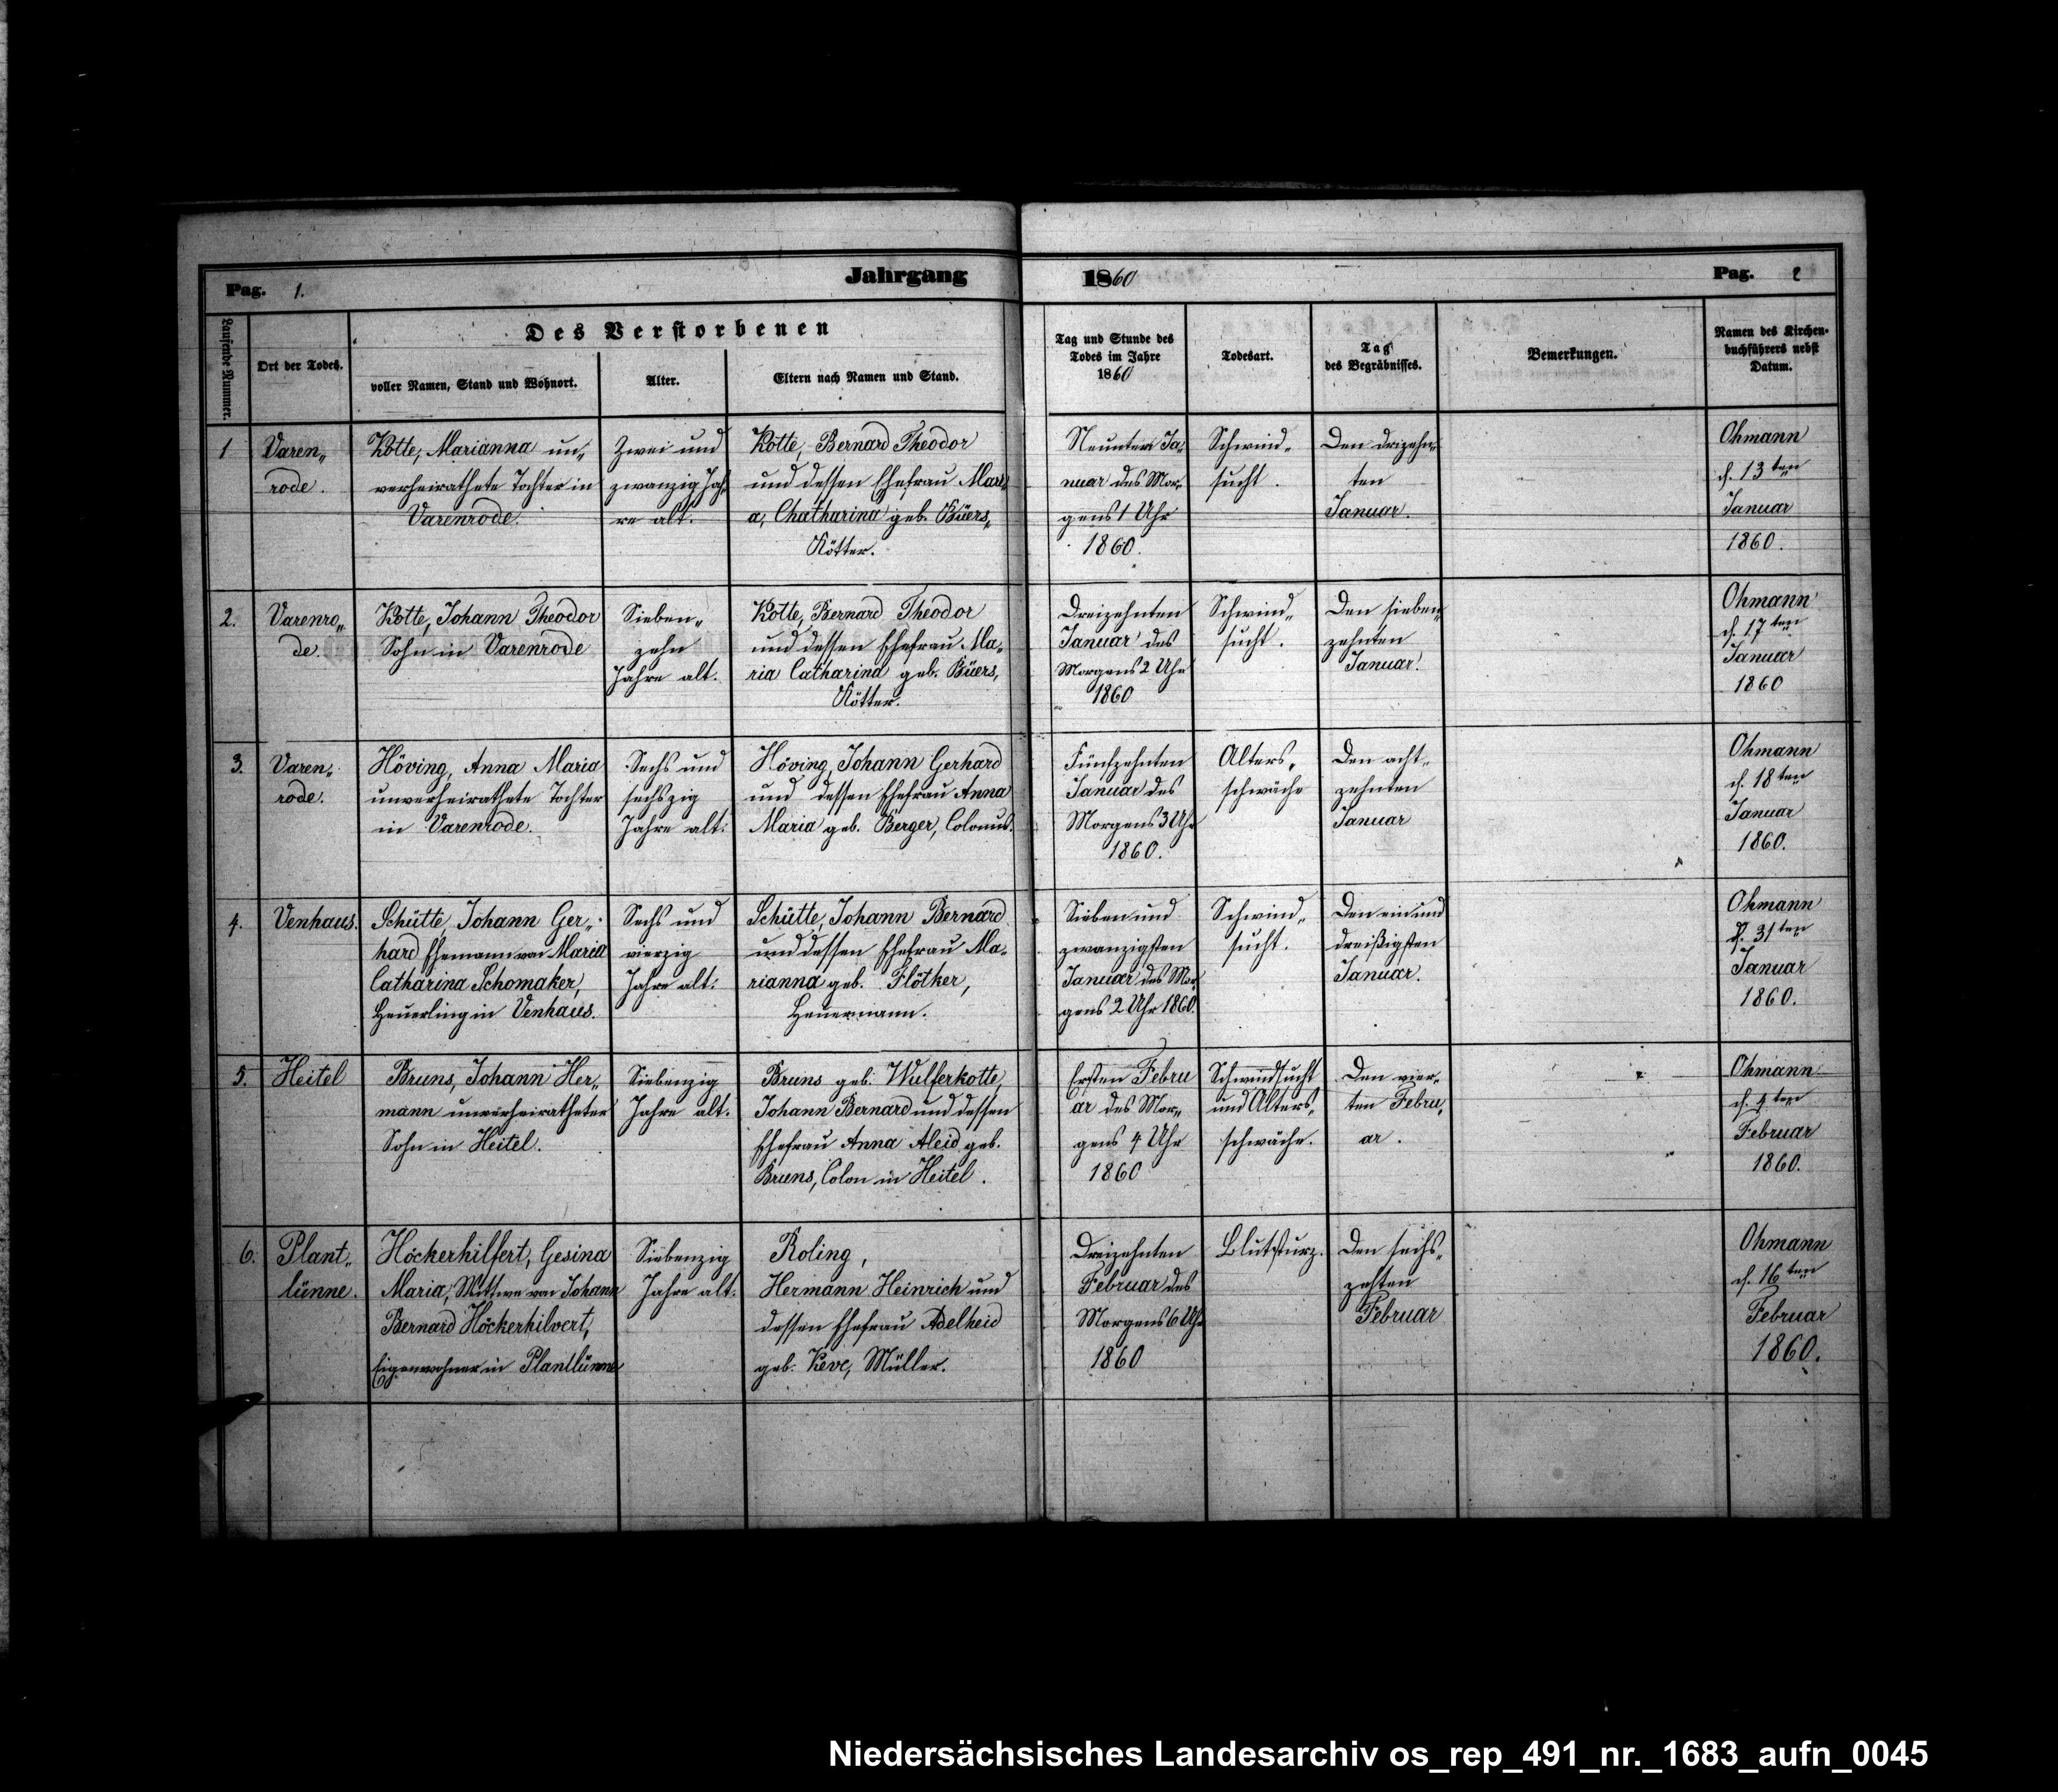 Pag. 1.
Jahrgang
1860
Pag. 2
Laufende Nummer.
Ort der Todes.
Des Verstorbenen
voller Namen, Stand und Wohnort.
Alter.
Eltern nach Namen und Stand.
Tag und Stunde des
Todes im Jahre
1860
Todesart.
Tag
des Begräbnisses.
Bemerkungen.
Namen des Kirchen-
buchführers nebst
Datum.
1
Varen„
rode.
Kotte, Marianna un„
verheirathete Tochter in
Varenrode.
Zwei und
zwanzig Jah„
re alt.
Kotte, Bernard Theodor
und dessen Ehefrau Mari„
a, Chatharina geb. Büers,
Kötter.
Neunten Ja„
nuar des Mor„
gens 1 Uhr
1860.
Schwind„
sucht.
Den drizehn„
ten
Januar.
Ohmann
d. 13ten
Januar
1860.
2.
Varenro„
de.
Kotte, Johann Theodor
Sohn in Varenrode
Sieben„
zehn
Jahre alt.
Kotte, Bernard Theodor
und dessen Ehefrau Ma„
ria Catharina geb. Büers,
Kötter.
Dreizehnten
Januar des
Morgens 2 Uhr
1860
Schwind„
sucht.
Den sieben„
zehnten
Januar.
Ohmann
d. 17ten
Januar
1860
3.
Varen„
rode.
Höving, Anna Maria
unverheirathete Tochter
in Varenrode.
Sechs und
sechszig
Jahre alt.
Höving, Johann Gerhard
und dessen Ehefrau Anna
Maria geb. Berger, Colonus.
Fünfzehnten
Januar des
Morgens 3 Uhr
1860.
Alters„
schwäche
Den acht„
zehnten
Januar
Ohmann
d. 18ten
Januar
1860.
4.
Venhaus.
Schütte, Johann Ger„
hard Ehemann von Maria
Catharina Schomaker,
Heuerling in Venhaus.
Sechs und
vierzig
Jahre alt.
Schütte, Johann Bernard
und dessen Ehefrau Ma„
rianna geb. Flötker,
Heuermann.
Sieben und
zwanzigsten
Januar des Mor„
gens 2 Uhr 1860.
Schwind„
sucht.
Den ein und
dreißigsten
Januar.
Ohmann
d. 31ten
Januar
1860.
5.
Heitel
Bruns, Johann Her„
mann unverheiratheter
Sohn in Heitel.
Siebenzig
Jahre alt.
Bruns geb. Wulferkotte,
Johann Bernard und dessen
Ehefrau Anna Aleid geb.
Bruns, Colon in Heitel.
Ersten Febru
ar des Mor„
gens 4 Uhr
1860
Schwindsucht
und Alters„
schwäche.
Den vier„
ten Febru„
ar.
Ohmann
d. 4ten
Februar
1860.
6.
Plant„
lünne.
Höckerhilfert, Gesina
Maria, Wittwe von Johann
Bernard Höckerhilvert,
Eigenwohner in Plantlünne
Siebenzig
Jahre alt.
Roling,
Hermann Heinrich und
dessen Ehefrau Adelheid
geb. Keve, Müller.
Dreizehnten
Februar des
Morgens 6 Uhr
1860
Blutsturz.
Den sechs„
zehten
Februar
Ohmann
d. 16ten
Februar
1860.
Niedersächsisches Landesarchiv os_rep_491_nr._1683_aufn_0045